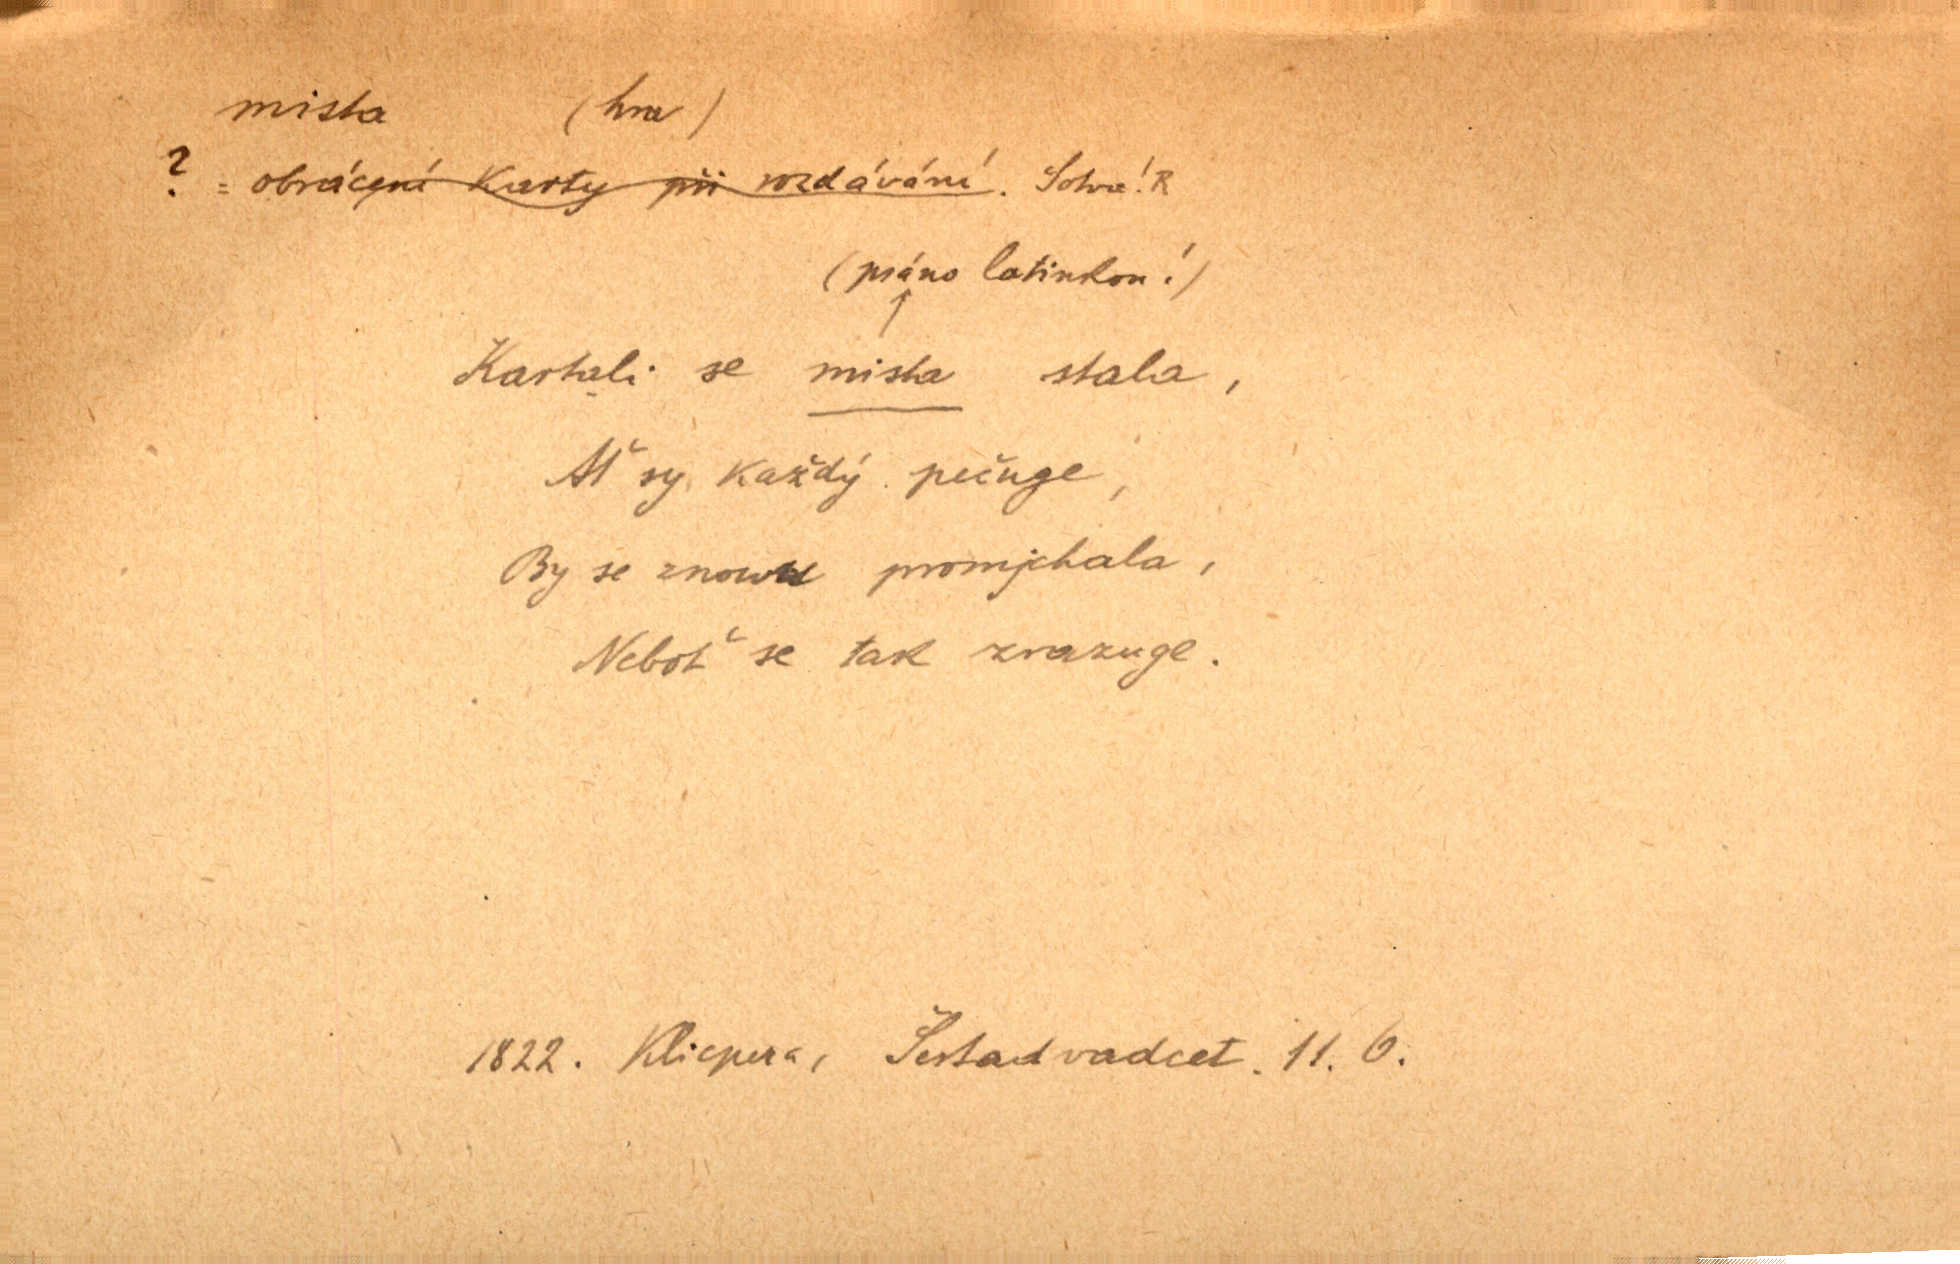 mista (hra)
? = obrácení karty při rozdávání. Sotva! R
(psáno latinkou!)
Kartali se mista stala,
Ať sy každý pečuge,
By se znowu promjchala,
Neboť se tak zrazuge.
1822. Klicpera, Šestadvadcet. 11. 6.